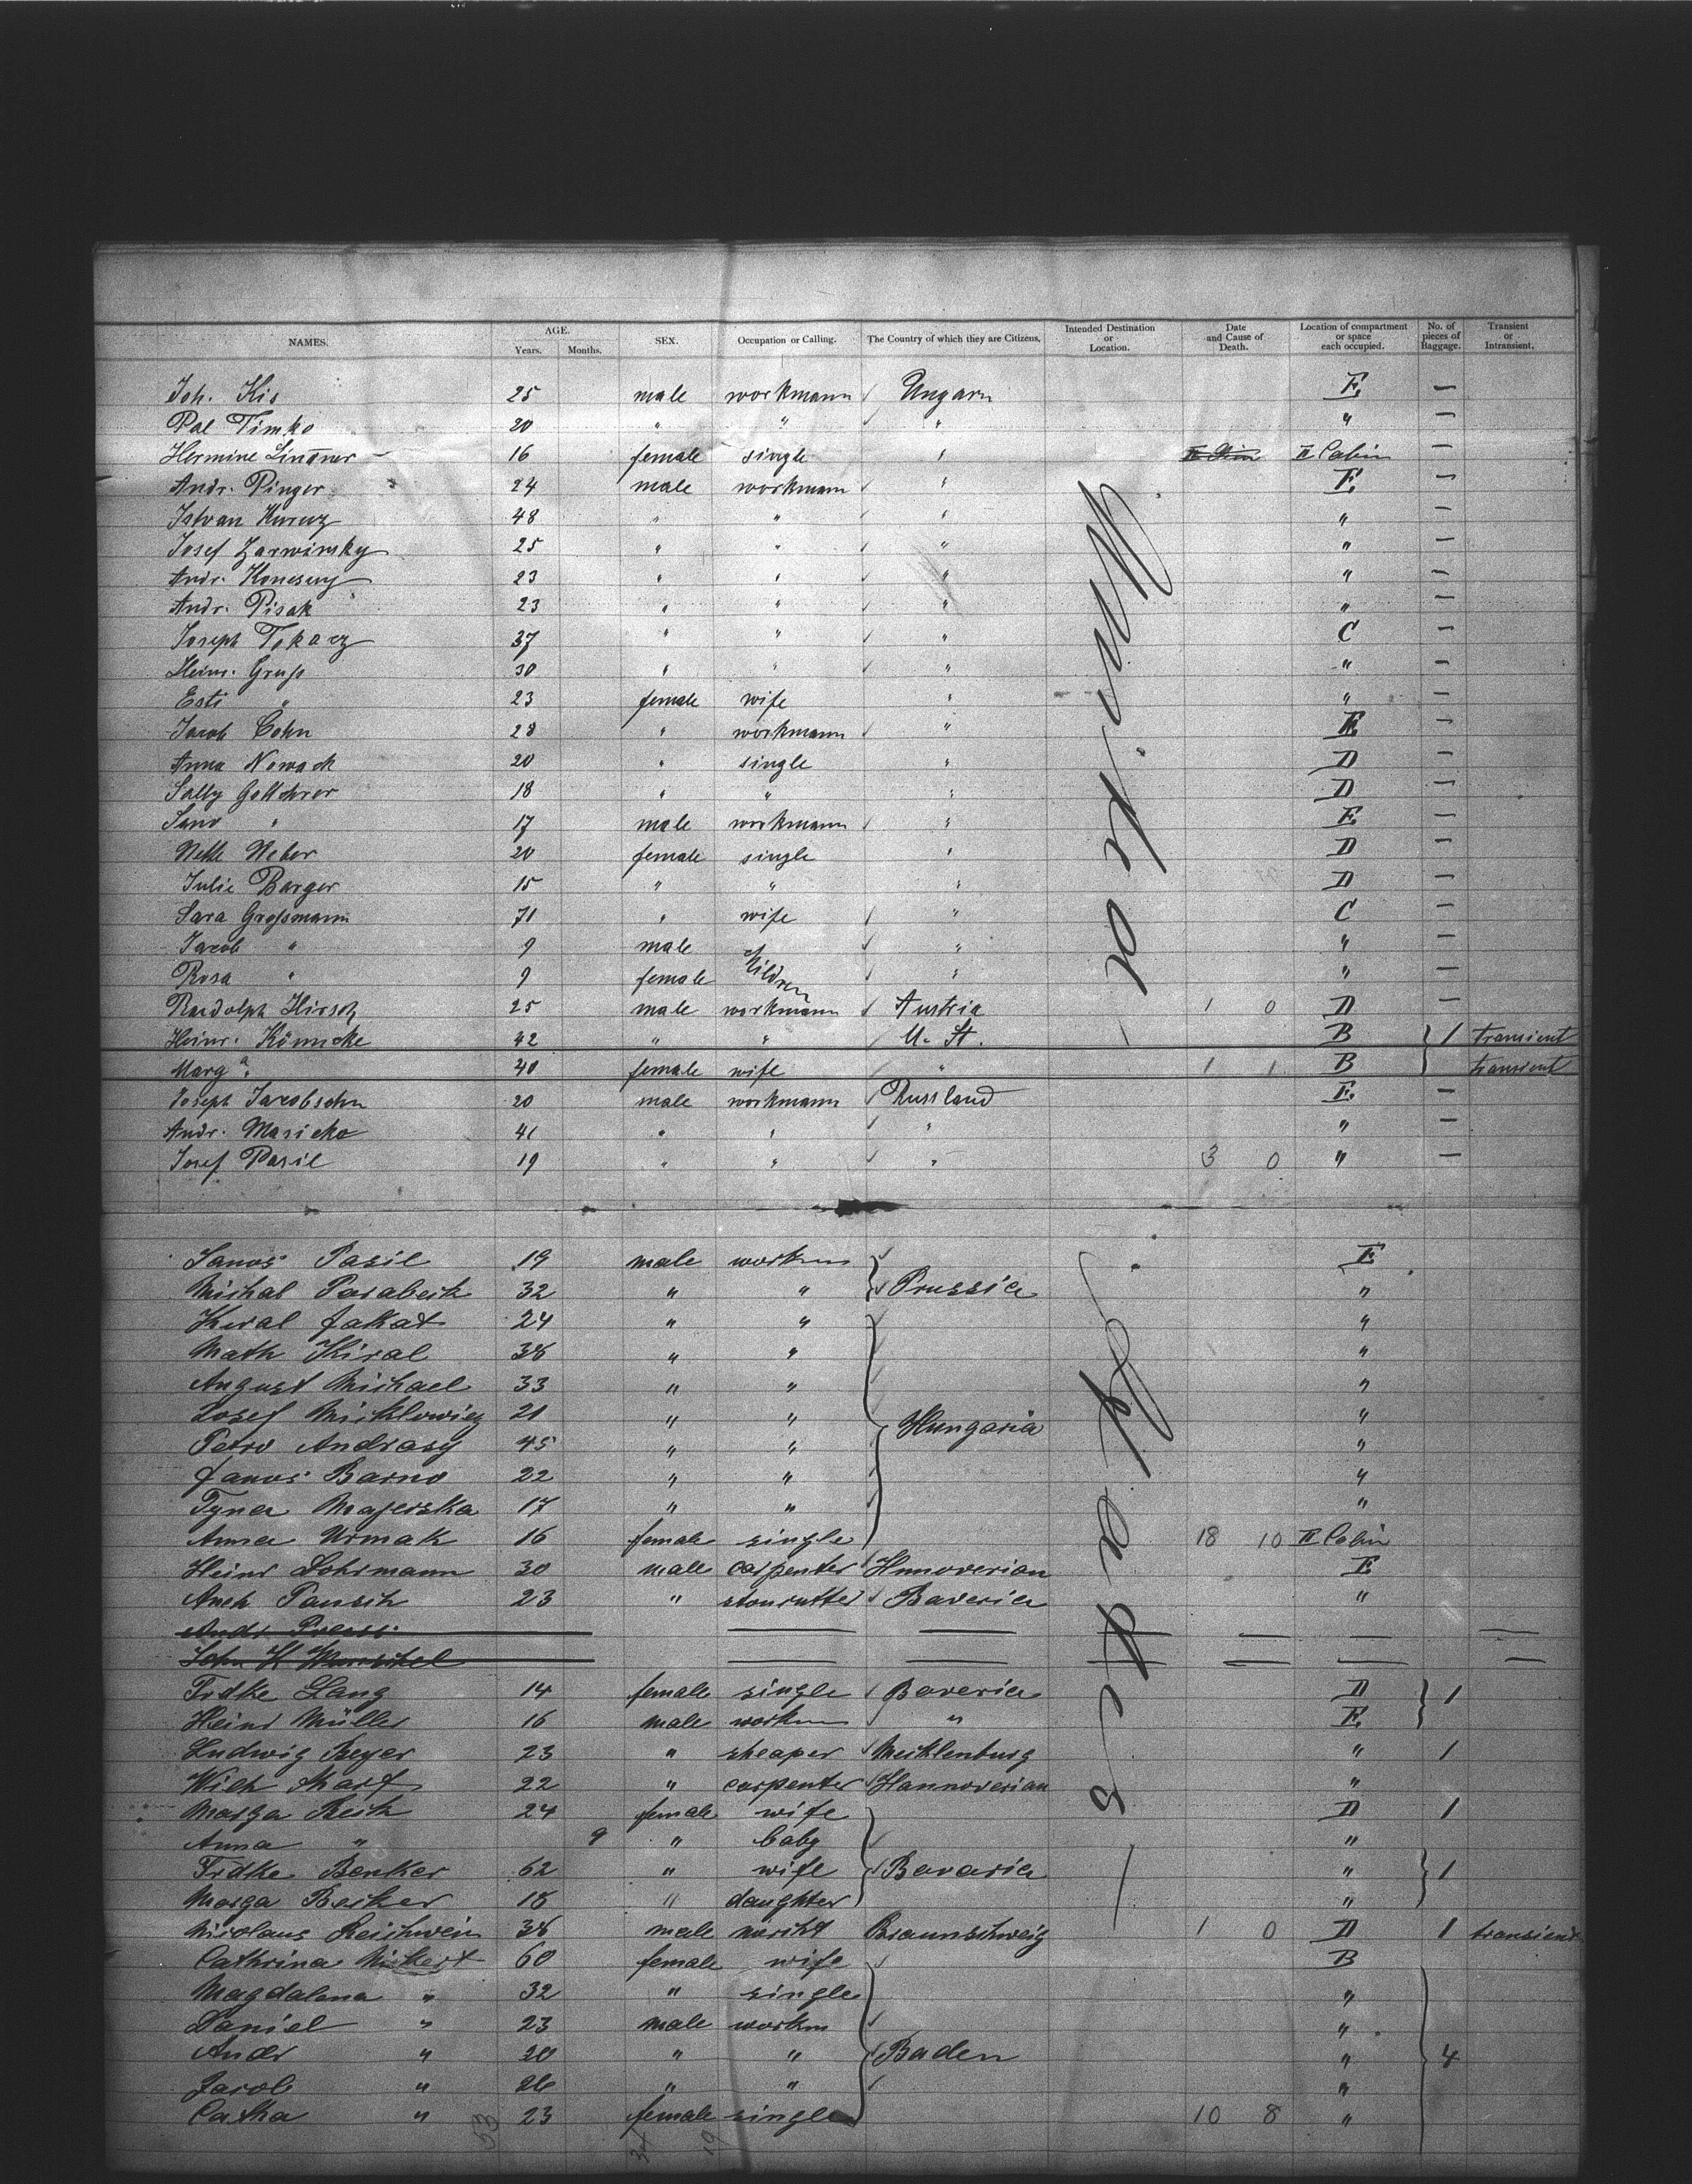 NAMES. AGE. Years. Months. SEX. Occupation or Calling. The Country of which they are Citizens. Intended Destination or Location. Date and Cause of Death. Location of compartment or space each occupied. No. of pieces of Baggage. Transient or Intransient.
Joh. Kis 25 male workmann Ungarn E —
Pal Timko 20 " " " " —
Hermine Lindner 16 female single " II Cabin —
Andr. Pinger 24 male workmann " E —
Istvan Kurucz 48 " " " " —
Josef Zarwinsky 25 " " " " —
Andr. 23 " " " " —
Andr. Pisak 23 " " " " —
Joseph Tokarz 37 " " " C —
Heinr. Gruß 30 " " " " —
Esti " 23 female wife " " —
Jacob Cohn 28 " workmann " E —
Anna Nowack 20 " single " D —
Sally 18 " " " D —
" 17 male workmann " E —
Weber 20 female single " D —
Julie Barger 15 " " " D —
Sara Großmann 71 " wife " C —
Jacob " 9 male children " " —
Rosa " 9 female " " —
Rudolph Hirsch 25 male workmann Austria 1 0 D —
Heinr. Könncke 42 " " U. St. B 1 transient
Marg. " 40 female wife " 1 1 B transient
Joseph Jacobsohn 20 male workmann Russland E —
Andr. Maricko 41 " " " " —
Josef Pasil 19 " " " 3 0 " —
Janos Pasil 19 male workm E
Michal 32 " " Prussia "
Jakat 24 " " "
Math Kiral 38 " " "
August Michael 33 " " "
Josef Micklowicz 21 " " Hungaria "
Petro Andrasy 45 " " "
Janos Barno 22 " " "
Majerska 17 " " "
Anna Urmak 16 female single 18 10 II Cabin
Heinr Lohrmann 30 male carpenter Hannoverian E
23 " Baveria "
Andr
John H
Frdke Lang 14 female single Baveria D 1
Heinr Müller 16 male workm " E
Ludwig Beyer 23 " sheaper Mecklenburg " 1
22 " carpenter Hannoverian "
Marga 24 female wife D 1
Anna " 9 " baby "
Frdke Benker 62 " wife Bavaria " 1
Marga Becker 18 " daughter "
Nicolaus Reichwein 38 male Braunschweig 1 0 D 1 transient
Cathrina 60 female wife B
Magdalena " 32 " single "
Daniel " 23 male workm "
Andr " 20 " " Baden " 4
Jacob " 26 " " "
Catha " 23 female single 10 8 "
53 34 19